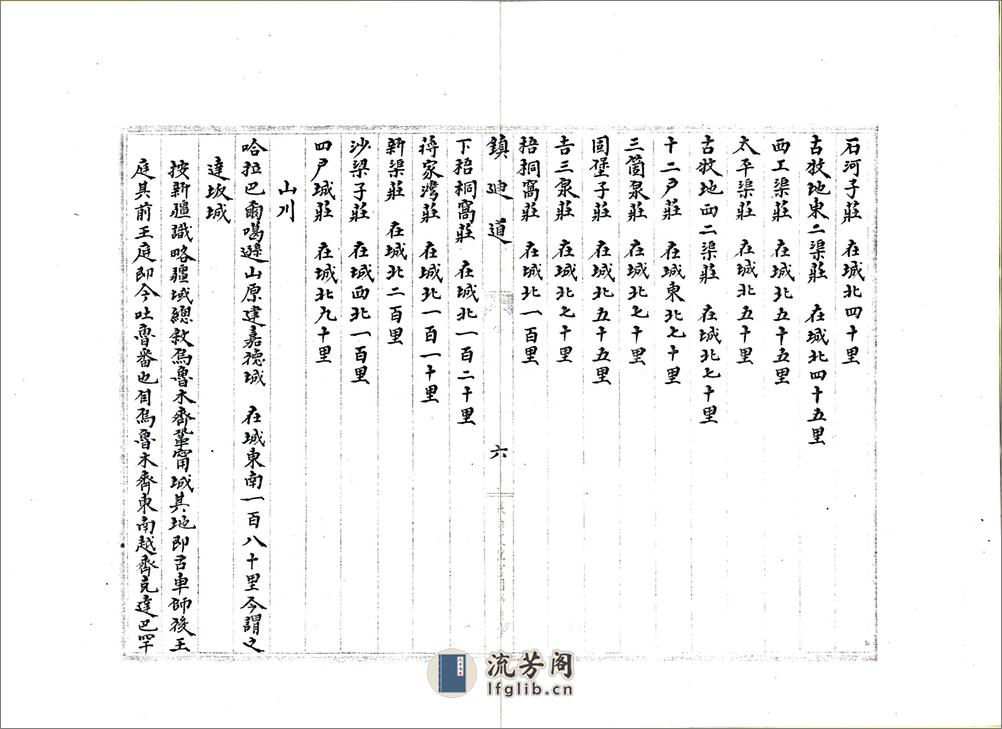 石河子莊　在城北四十里
古牧地東二渠莊　在城北四十五里
西工渠莊　在城北五十五里
太平渠莊　在城北五十里
古牧地西二渠莊　在城北七十里
十二戶莊　在城東北七十里
三箇泉莊　在城北七十里
固堡子莊　在城北五十五里
吉三泉莊　在城北七十里
梧桐窩莊　在城北一百里
鎮迪道　六
下梧桐窩莊　在城北一百二十里
蔣家灣莊　在城北一百一十里
新渠莊　在城北二百里
沙梁子莊　在城西北一百里
四戶城莊　在城北九十里
山川
哈拉巴爾噶遜山原建嘉德城　在城東南一百八十里今謂之
達坂城
按新疆識略疆域總敘烏魯木齊鞏甯城其地即古車師後王
庭其前王庭即今吐魯番也自烏魯木齊東南越齊克達巴罕
流芳阁
lfglib.cn